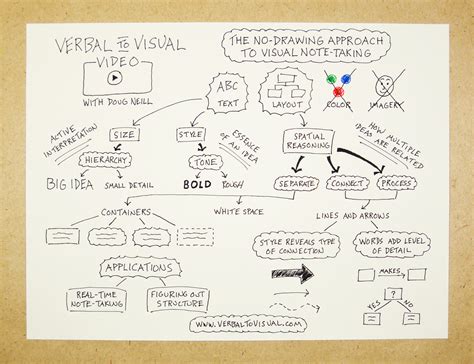 VERBAL TO VISUAL
VIDEO
WITH DOUG NEILL
THE NO-DRAWING APPROACH
TO VISUAL NOTE-TAKING
ABC
TEXT
LAYOUT
COLOR
IMAGERY
ACTIVE
INTERPRETATION
SIZE
STYLE
ESSENCE
OF AN IDEA
SPATIAL
REASONING
HOW MULTIPLE
IDEAS ARE
RELATED
HIERARCHY
TONE
BIG IDEA
SMALL DETAIL
BOLD
ROUGH
SEPARATE
CONNECT
PROCESS
CONTAINERS
WHITE SPACE
LINES AND ARROWS
STYLE REVEALS TYPE
OF CONNECTION
WORDS ADD LEVEL
OF DETAIL
APPLICATIONS
REAL-TIME
NOTE-TAKING
FIGURING OUT
STRUCTURE
MAKES
?
YES
NO
WWW.VERBALTOVISUAL.COM